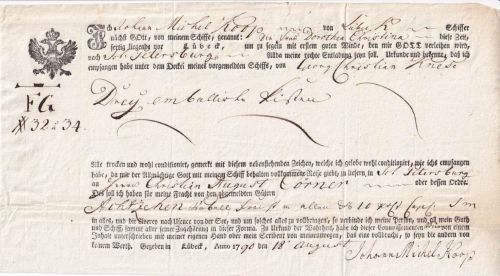 Ich Johan Michel Koop von Lübeck Schiffer
nächst GOtt, von meinem Schiffe, genannt: die Frau Dorothea Christina diese Zeit,
fertig liegend vor Lübeck, um zu segeln mit ersten guten Winde, den mir GOTT verleihen wird,
nach St: Petersburg Allda meine rechte Entladung seyn soll. Urkunde und bekenne, daß ich
empfangen habe unter dem Deckel meines vorgemeldten Schiffs, von Georg Christian Knese
FG
32 a 34.
Drey emballirte Kisten
Alle trocken und wohl conditionirt, gemerkt mit diesem nebenstehenden Zeichen, welche ich gelobe wohl conditionirt, wie ichs empfangen
habe, da mir der Allmächtige Gott mit meinem Schiffe behalten vollkommene Reise giebt, zu liefern in St: Petersburg
an Herrn Christian August Cörner oder dessen Order.
Des soll ich haben für meine Fracht von den abgemeldten Gütern
Achtzehen in allem
in alles, und die Avarey nach Usance von der See, und um solches alles zu vollbringen, so verbinde ich meine Person, und all mein Guth
und Schiff, sammt aller seiner Zugehörung in dieser Forma. Zu Urkund der Wahrheit, habe ich dieser Connossementen von einem
Inhalt unterschrieben mit meiner eigenen Hand oder mein Scribent von meinentwegen, das eine vollenzogen, das die andern
von keinem Werth. Gegeben in Lübeck, Anno 1790 den 18 August.
Johann Michel Koop